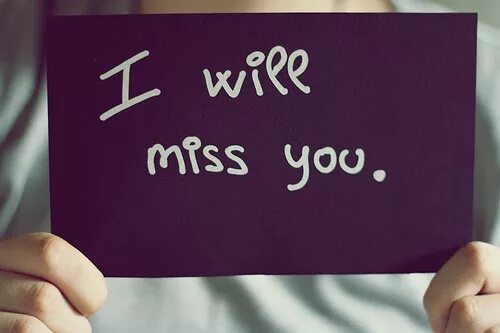 I will
miss you.